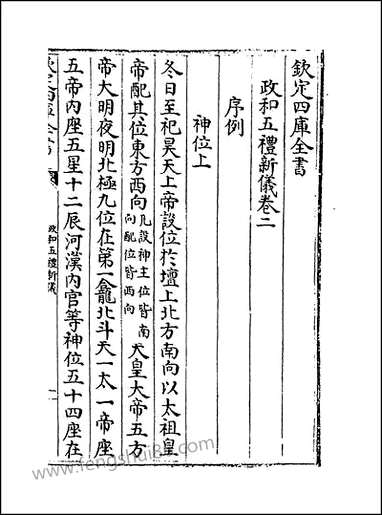 欽定四庫全書
政和五禮新儀卷二
序例
神位上
冬日至祀昊天上帝設位於壇上北方南向以太祖皇
帝配其位東方西向凡設神主位皆南向配位皆西向天皇大帝五方
帝大明夜明北極九位在第一龕北斗天一太一帝座
五帝內座五星十二辰河漢內官等神位五十四座在
政和五禮新儀
www.fengshui86.com